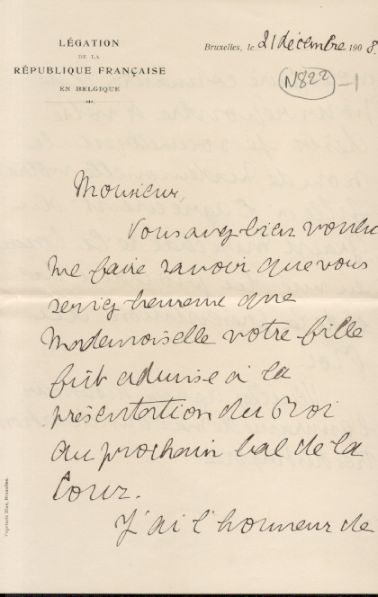 LÉGATION
DE LA
RÉPUBLIQUE FRANÇAISE
EN BELGIQUE
Bruxelles, le 21 décembre 1908.
N822 - 1
Monsieur,
Vous avez bien voulu
me faire savoir que vous
seriez heureux que
Mademoiselle votre fille
fût admise à la
présentation du Roi
au prochain bal de la
Cour.
J'ai l'honneur de